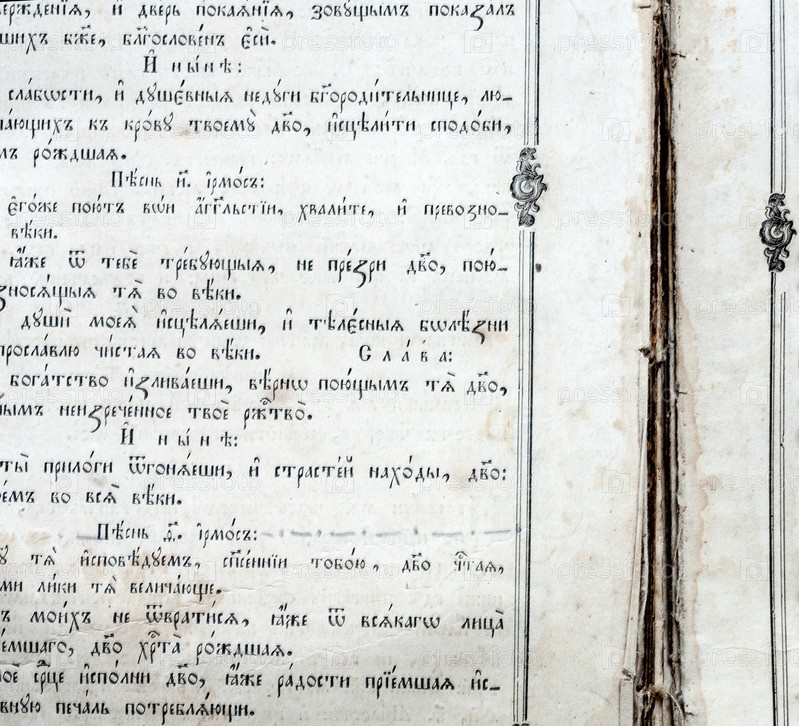 ержде́нїѧ, и҆ две́рь покаѧ́нїѧ, зовꙋ́щымъ показа́лъ
шихъ бж҃е, бл҃гослове́нъ є҆сѝ.
И҆ ны́нѣ:
сла́бѡсти, и҆ дꙋшє́вныѧ недꙋ́ги бг҃ороди́тельнице, лю-
ва́ющихъ къ кро́вꙋ твоемꙋ̀ дв҃о, и҆сцѣли́ти сподо́би,
мъ ро́ждшаѧ.
Пѣ́снь и҃. І҆рмо́съ:
є҆го́же пою́тъ во́и а҆́гг҃льстїи, хвали́те, и҆ превозно-
вѣ́ки.
ꙗ҆̀же ѿ тебє̀ тре́бꙋющыѧ, не пре́зри дв҃о, пою́-
зносѧ́щыѧ тѧ̀ во вѣ́ки.
дꙋшѝ моеѧ̀ и҆сцѣлѧ́еши, и҆ тѣлє́сныѧ бѡлѣ̑зни
просла́влю чи́стаѧ во вѣ́ки. Сла́ва:
бога́тство и҆злива́еши, вѣ́рнѡ пою́щымъ тѧ̀ дв҃о,
нымъ неизрече́нное твоѐ рж҃тво̀.
И҆ ны́нѣ:
ты̀ прило́ги ѿгонѧ́еши, и҆ страсте́й нахо́ды, дв҃о:
о́емъ во всѧ̀ вѣ́ки.
Пѣ́снь ѳ҃. І҆рмо́съ:
ꙋ тѧ̀ и҆сповѣ́дꙋемъ, сп҃се́ннїи тобо́ю, дв҃о чⷭ҇таѧ,
ми ли́ки тѧ̀ велича́юще.
ъ мои́хъ не ѿврати́сѧ, ꙗ҆́же ѿ всѧ́кагѡ лица̀
є́мшаго, дв҃о хрⷭ҇та̀ ро́ждшаѧ.
мое́ срⷣце и҆спо́лни дв҃о, ꙗ҆́же ра́дости прїе́мшаѧ и҆с-
о́внꙋю печа́ль потреблѧ́ющи.